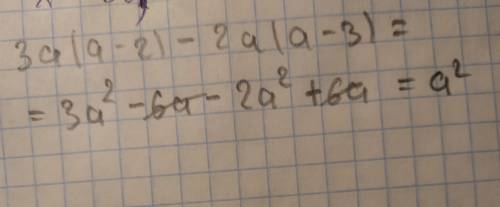 3a(a-2)-2a(a-3)=
=3a²-6a-2a²+6a=a²